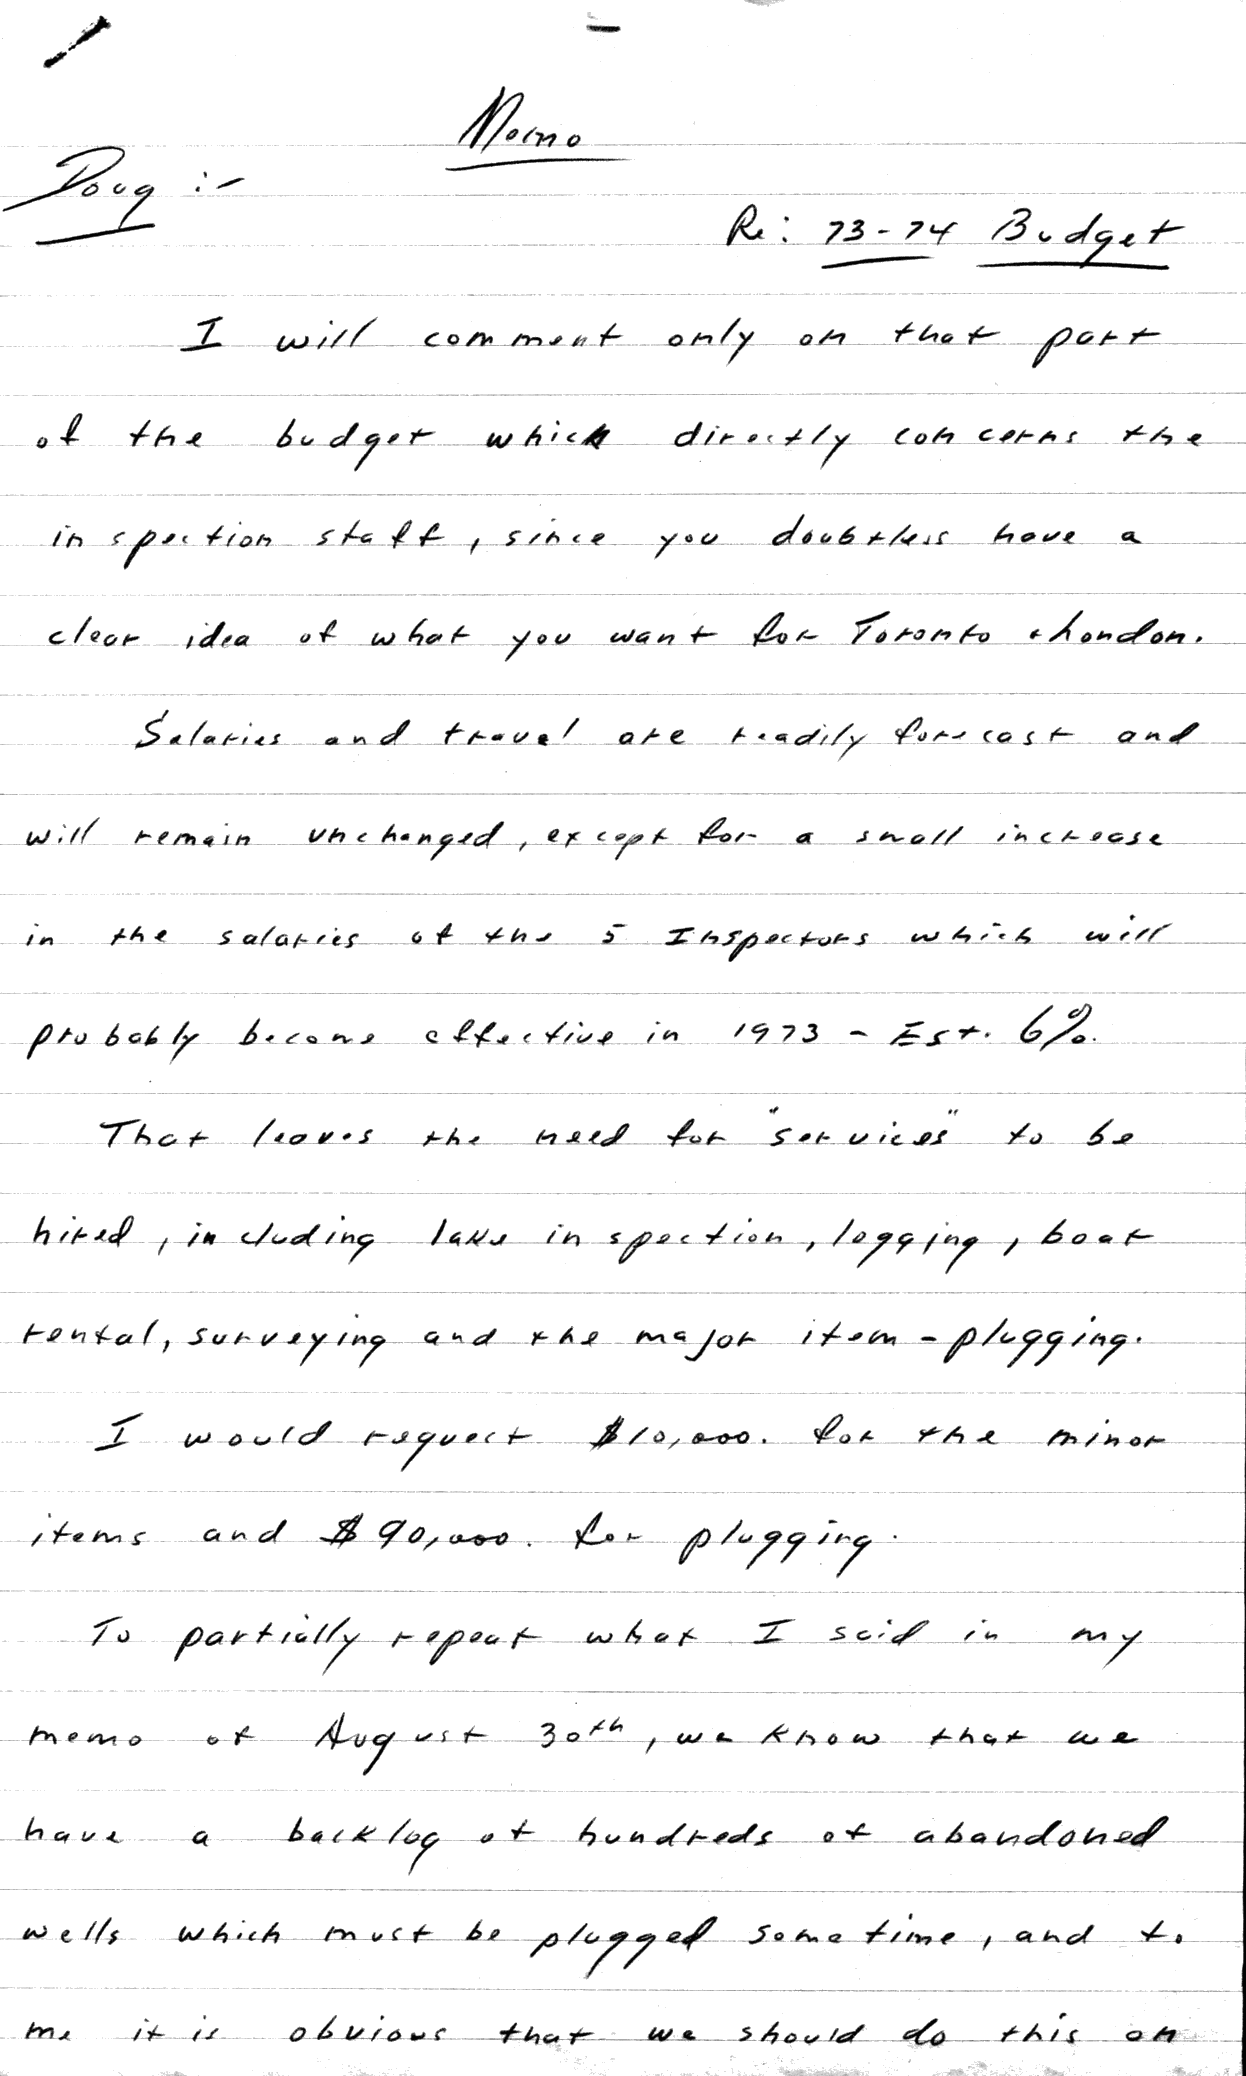 Memo
Doug :-
Re: 73-74 Budget
I will comment only on that part
of the budget which directly concerns the
inspection staff, since you doubtless have a
clear idea of what you want for Toronto + London.
Salaries and travel are readily forecast and
will remain unchanged, except for a small increase
in the salaries of the 5 Inspectors which will
probably become effective in 1973 - Est. 6%.
That leaves the need for "services" to be
hired, including lake inspection, logging, boat
rental, surveying and the major item - plugging.
I would request $10,000. for the minor
items and $90,000. for plugging.
To partially repeat what I said in my
memo of August 30th, we know that we
have a backlog of hundreds of abandoned
wells which must be plugged sometime, and to
me it is obvious that we should do this on